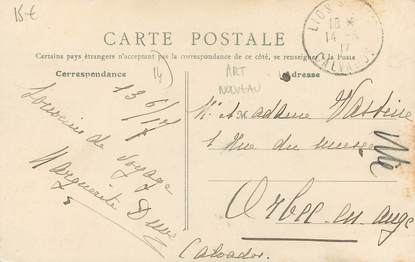 15€
CARTE POSTALE
Certains pays étrangers n'acceptant pas la correspondance de ce côté, se renseigner à la Poste
Correspondance
Adresse
14
ART
NOUVEAU
LION
14
17
CALVADOS
13/6/17
Souvenir de Voyage
Marguerite
Madame
rue du musée
Orbec-en-auge
Calvados.